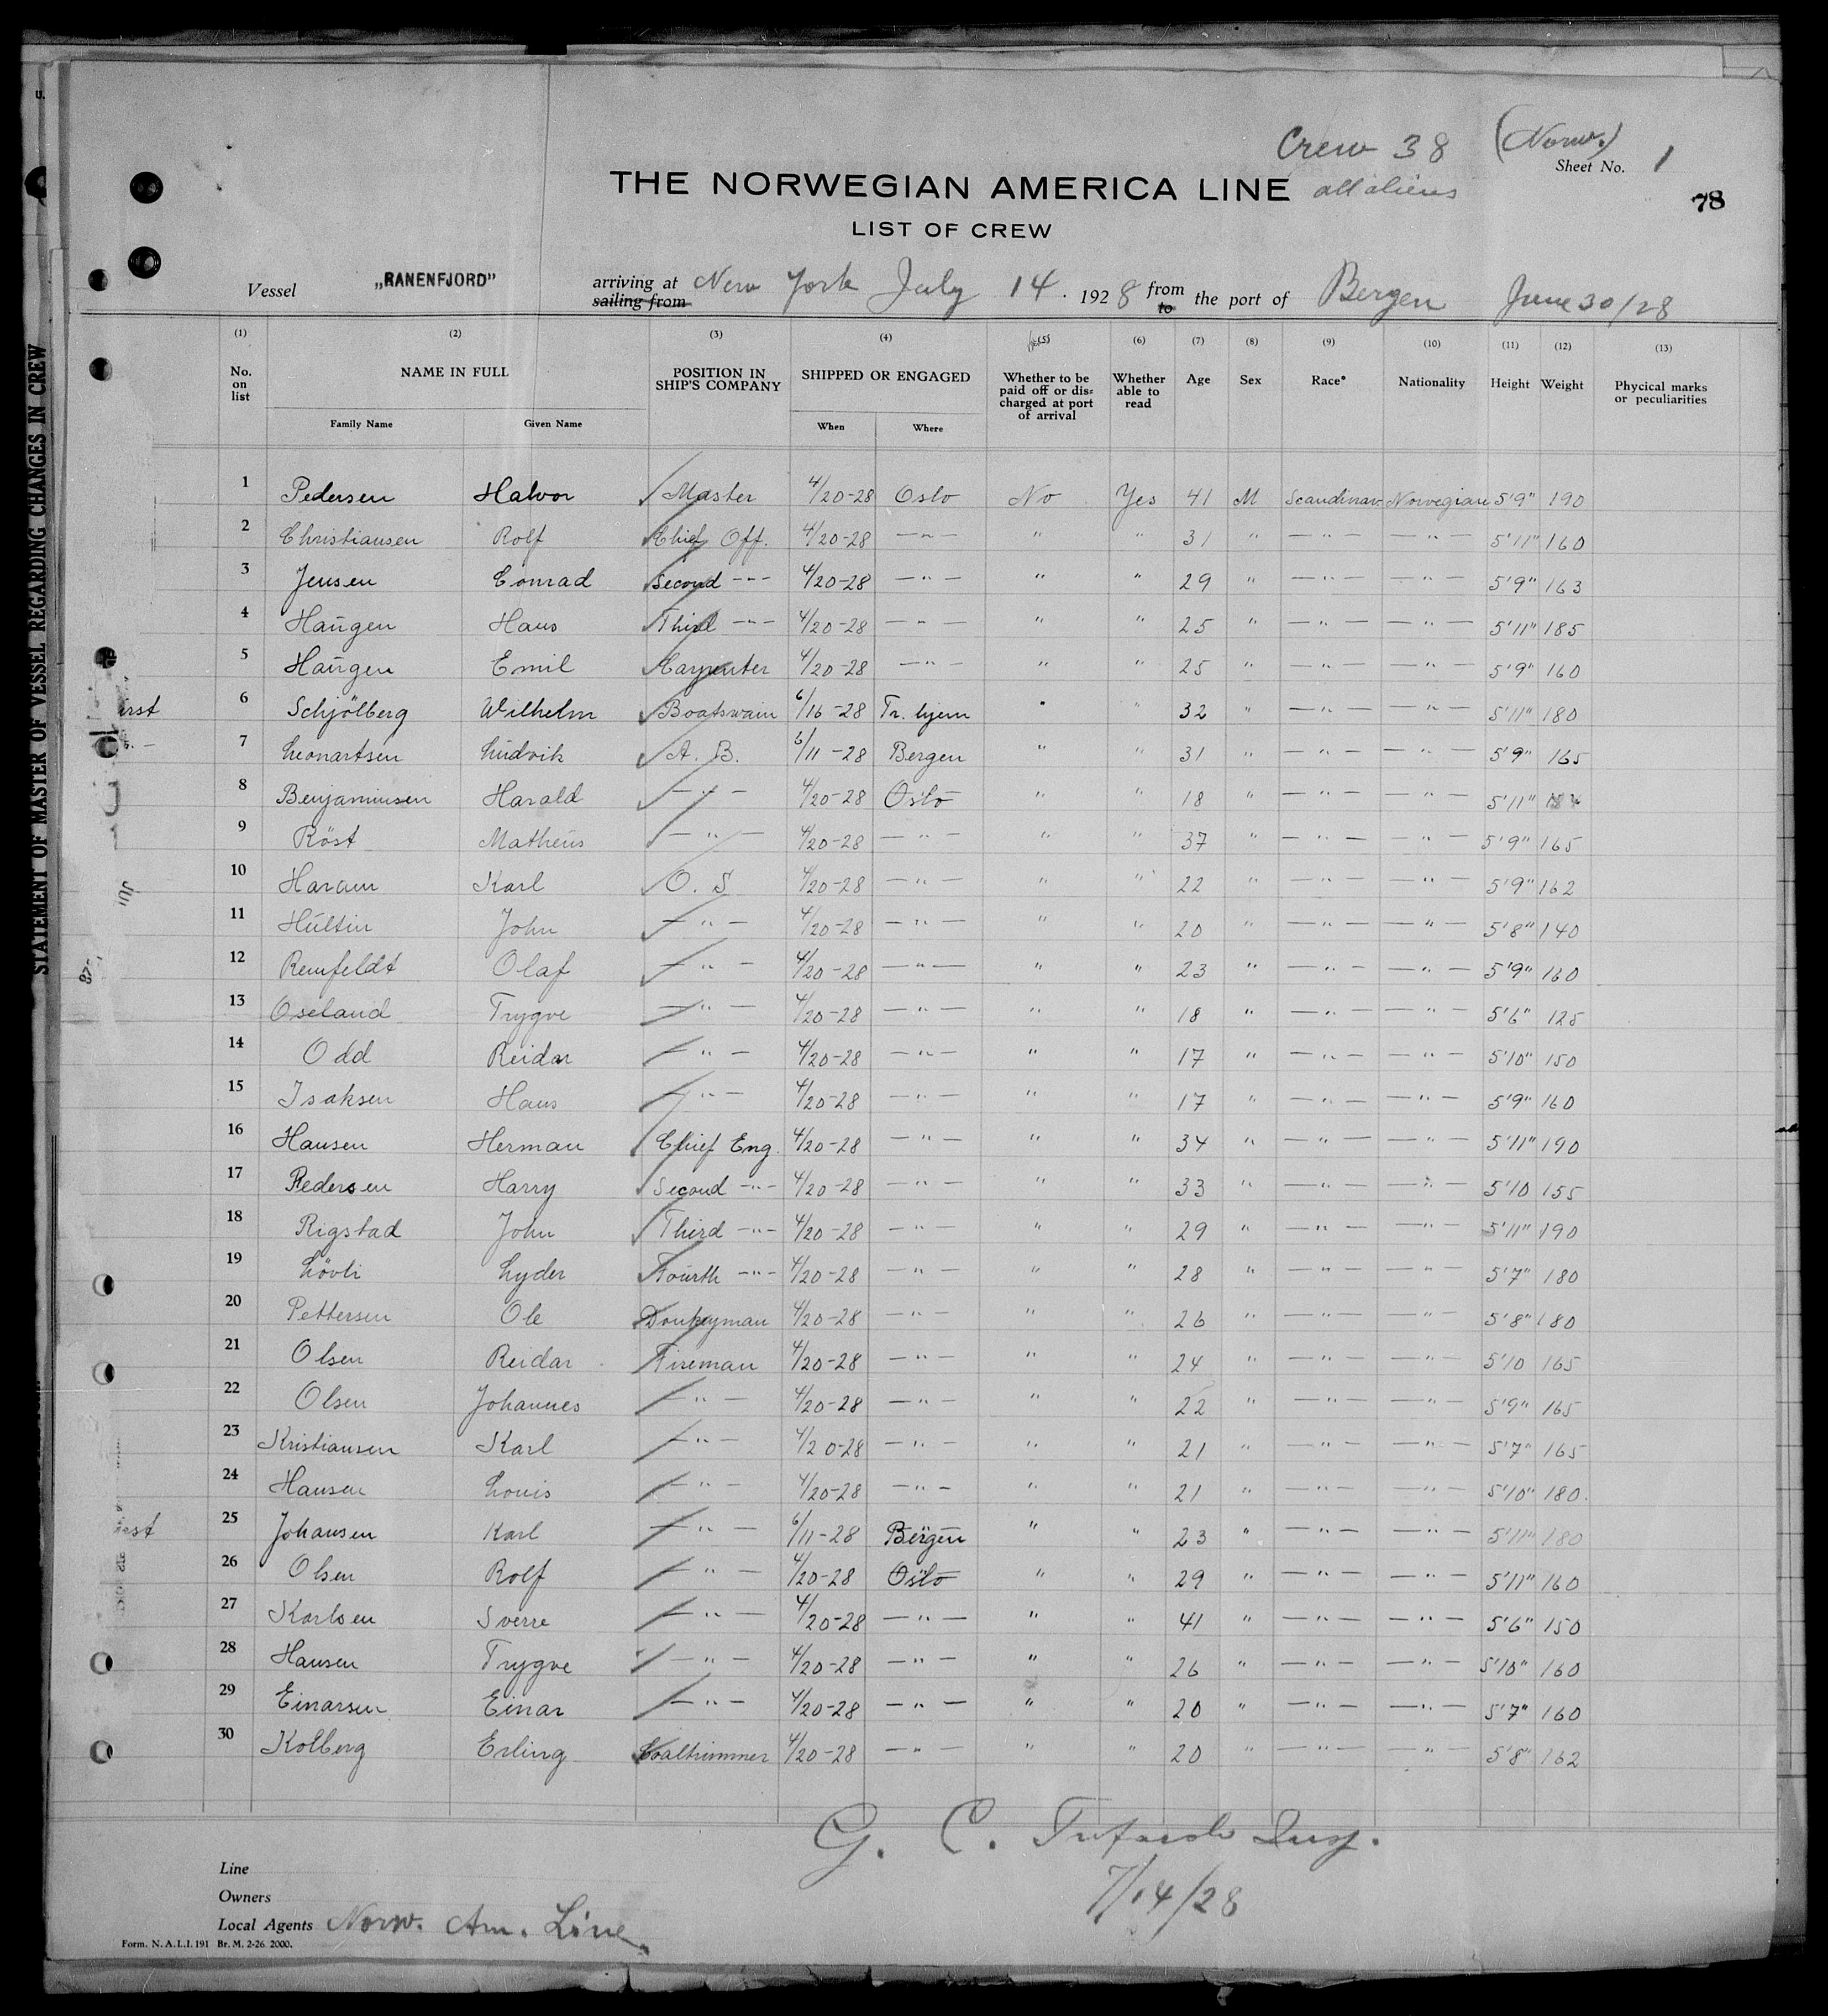 Crew 38 (Norw.)
Sheet No. 1
THE NORWEGIAN AMERICA LINE all aliens
78
LIST OF CREW
Vessel „RANENFJORD" arriving at New York July 14. 1928 from the port of Bergen June 30/28
sailing from to
(1) (2) (3) (4) (5) (6) (7) (8) (9) (10) (11) (12) (13)
No. on list NAME IN FULL POSITION IN SHIP'S COMPANY SHIPPED OR ENGAGED Whether to be paid off or dis= charged at port of arrival Whether able to read Age Sex Race* Nationality Height Weight Phycical marks or peculiarities
Family Name Given Name When Where
1 Pedersen Halvor Master 4/20-28 Oslo No Yes 41 M Scandinav. Norwegian 5'9" 190
2 Christiansen Rolf Chief Off. 4/20-28 —"— " " 31 " —"— —"— 5'11" 160
3 Jensen Conrad Second --- 4/20-28 —"— " " 29 " —"— —"— 5'9" 163
4 Haugen Hans Third -"- 4/20-28 —"— " " 25 " —"— —"— 5'11" 185
5 Haugen Emil Carpenter 4/20-28 —"— " " 25 " —"— —"— 5'9" 160
6 Schjölberg Wilhelm Boatswain 6/16-28 Tr. hjem " " 32 " —"— —"— 5'11" 180
7 Leonartsen Ludvik A. B. 6/11-28 Bergen " " 31 " —"— —"— 5'9" 165
8 Benjaminsen Harald —"— 4/20-28 Oslo " " 18 " —"— —"— 5'11"
9 Röst Matheus —"— 4/20-28 —"— " " 37 " —"— —"— 5'9" 165
10 Haram Karl O. S 4/20-28 —"— " " 22 " —"— —"— 5'9" 162
11 Hultin John —"— 4/20-28 —"— " " 20 " —"— —"— 5'8" 140
12 Remfeldt Olaf —"— 4/20-28 —"— " " 23 " —"— —"— 5'9" 160
13 Oseland Trygve —"— 4/20-28 —"— " " 18 " —"— —"— 5'6" 125
14 Odd Reidar —"— 4/20-28 —"— " " 17 " —"— —"— 5'10" 150
15 Isaksen Hans —"— 4/20-28 —"— " " 17 " —"— —"— 5'9" 160
16 Hansen Herman Chief Eng. 4/20-28 —"— " " 34 " —"— —"— 5'11" 190
17 Pedersen Harry Second -"- 4/20-28 —"— " " 33 " —"— —"— 5'10 155
18 Rigstad John Third -"- 4/20-28 —"— " " 29 " —"— —"— 5'11" 190
19 Lövli Lyder Fourth -"- 4/20-28 —"— " " 28 " —"— —"— 5'7" 180
20 Pettersen Ole Donkeyman 4/20-28 —"— " " 26 " —"— —"— 5'8" 180
21 Olsen Reidar Fireman 4/20-28 —"— " " 24 " —"— —"— 5'10 165
22 Olsen Johannes —"— 4/20-28 —"— " " 22 " —"— —"— 5'9" 165
23 Kristiansen Karl —"— 4/20-28 —"— " " 21 " —"— —"— 5'7" 165
24 Hansen Louis —"— 4/20-28 —"— " " 21 " —"— —"— 5'10" 180.
25 Johansen Karl —"— 6/11-28 Bergen " " 23 " —"— —"— 5'11" 180
26 Olsen Rolf —"— 4/20-28 Oslo " " 29 " —"— —"— 5'11" 160
27 Karlsen Sverre —"— 4/20-28 —"— " " 41 " —"— —"— 5'6" 150
28 Hansen Trygve —"— 4/20-28 —"— " " 26 " —"— —"— 5'10" 160
29 Einarsen Einar —"— 4/20-28 —"— " " 20 " —"— —"— 5'7" 160
30 Kolberg Erling Coaltrimmer 4/20-28 —"— " " 20 " —"— —"— 5'8" 162
G. C. Insp.
7/14/28
Line
Owners
Local Agents Norw. Am. Line.
Form. N. A. L. I. 191 Br. M. 2-26. 2000.
STATEMENT OF MASTER OF VESSEL REGARDING CHANGES IN CREW